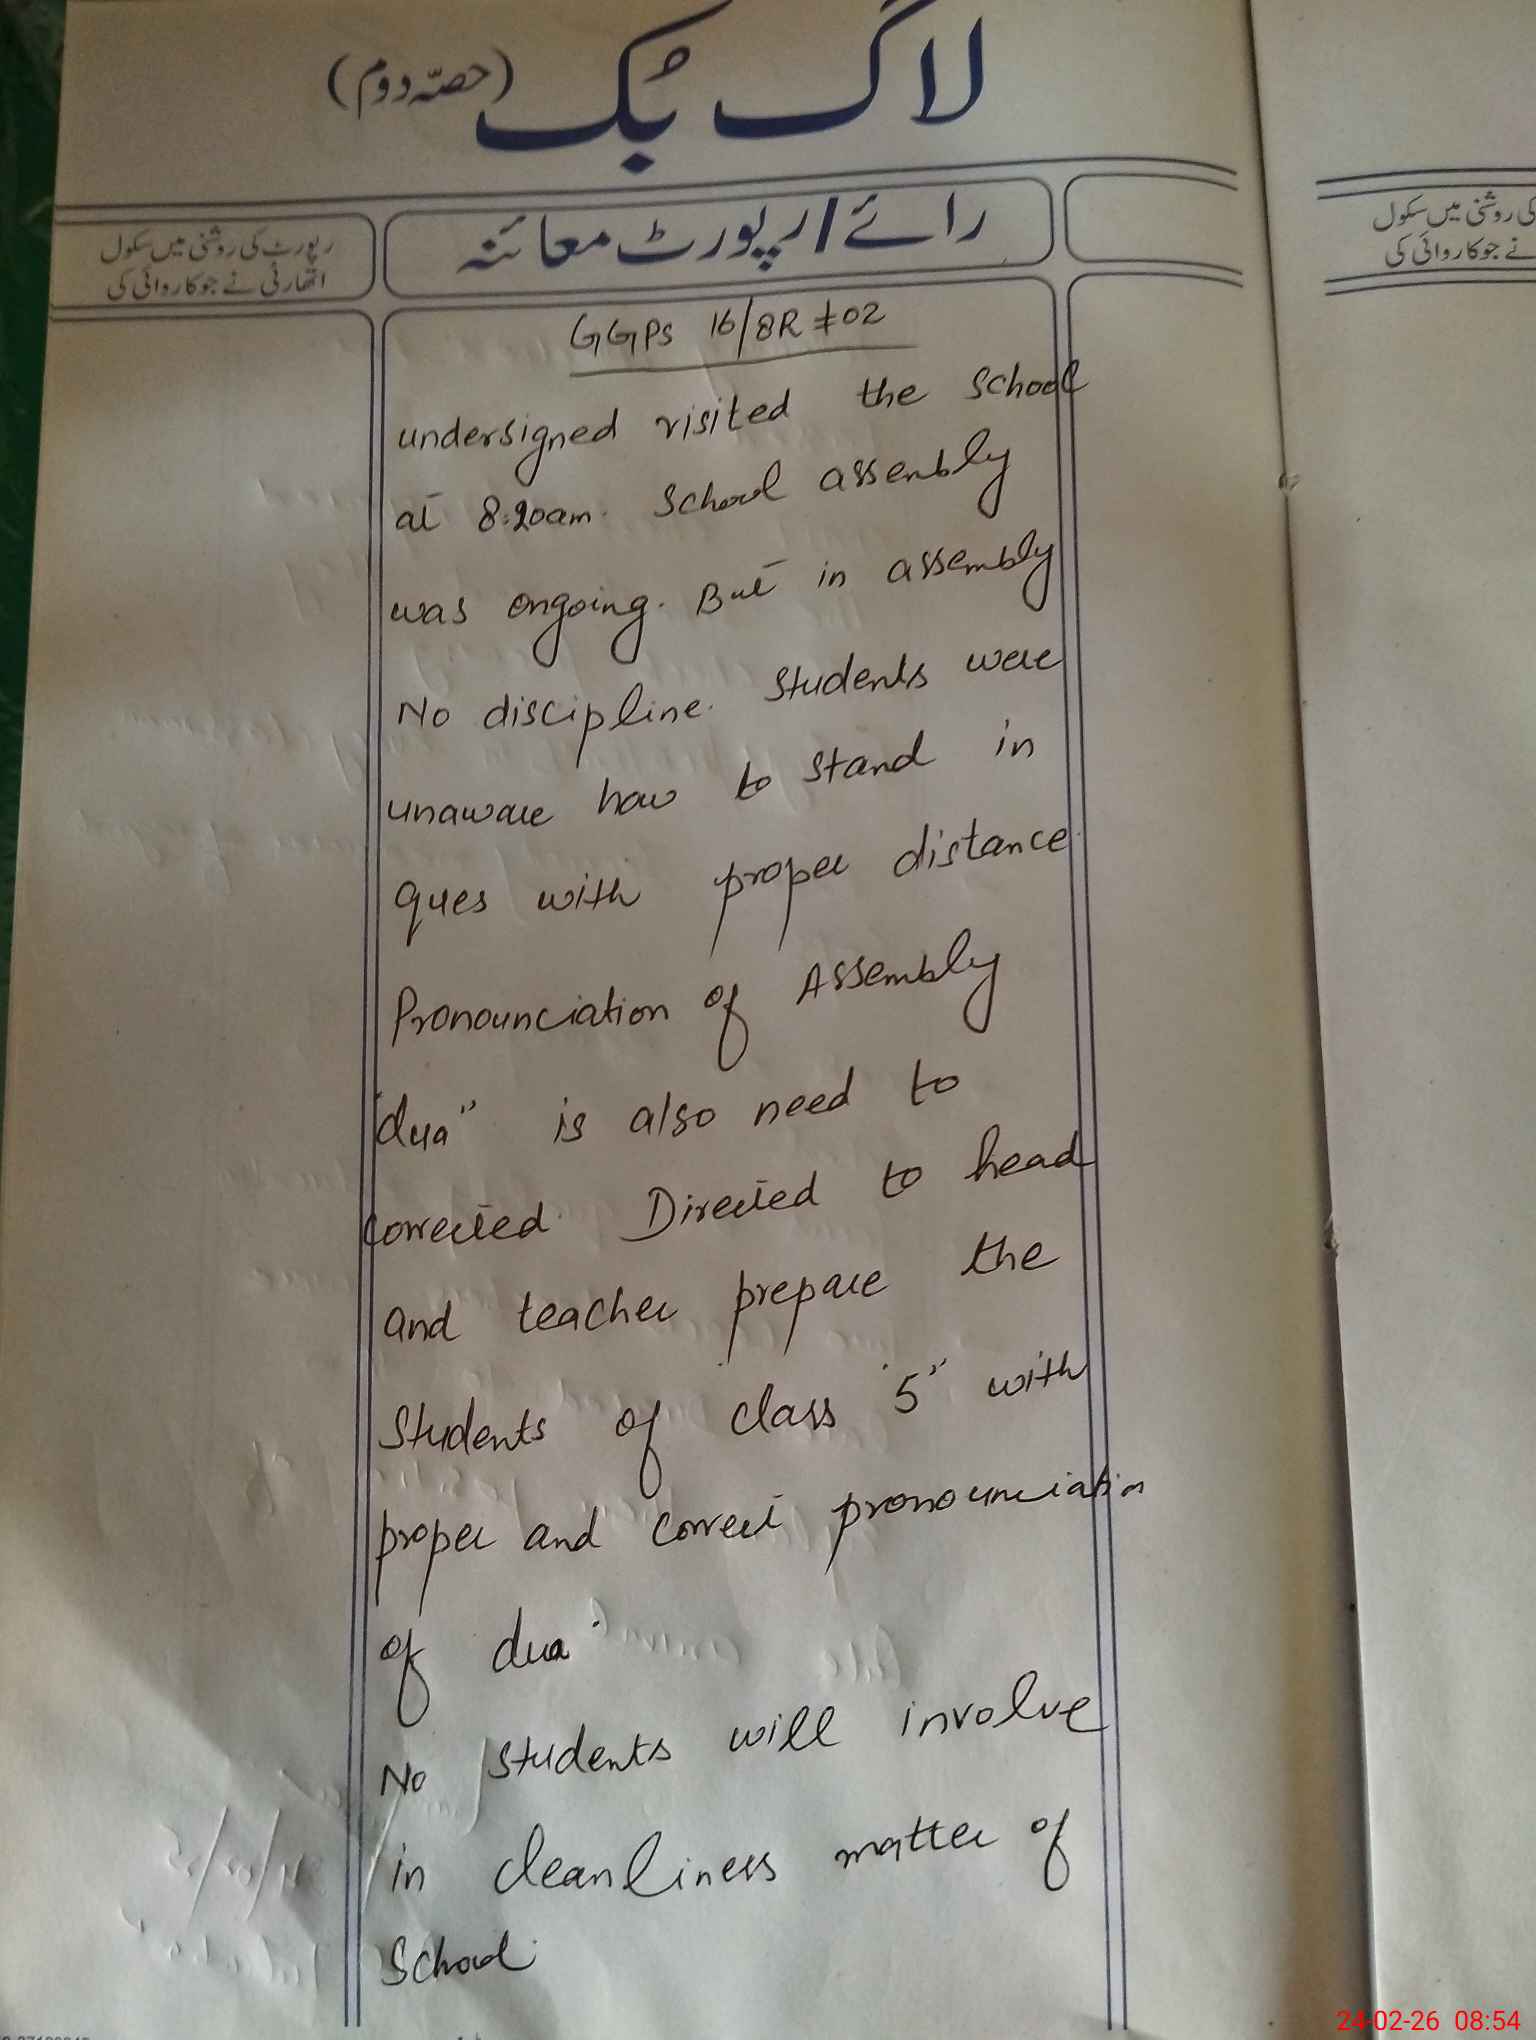 لاگ بُک (حصّہ دوم)
رپورٹ کی روشنی میں سکول
اتھارٹی نے جو کاروائی کی
رائے/رپورٹ معائنہ
GGPS 16/8R #02
undersigned visited the School
at 8:20am. School assembly
was ongoing. But in assembly
No discipline. Students were
unaware how to stand in
ques with proper distance
Pronounciation of Assembly
"dua" is also need to
corrected. Directed to head
and teacher prepare the
Students of class "5" with
proper and correct pronounciation
of dua.
No students will involve
in cleanliness matter of
School.
کی روشنی میں سکول
نے جو کاروائی کی
24-02-26 08:54